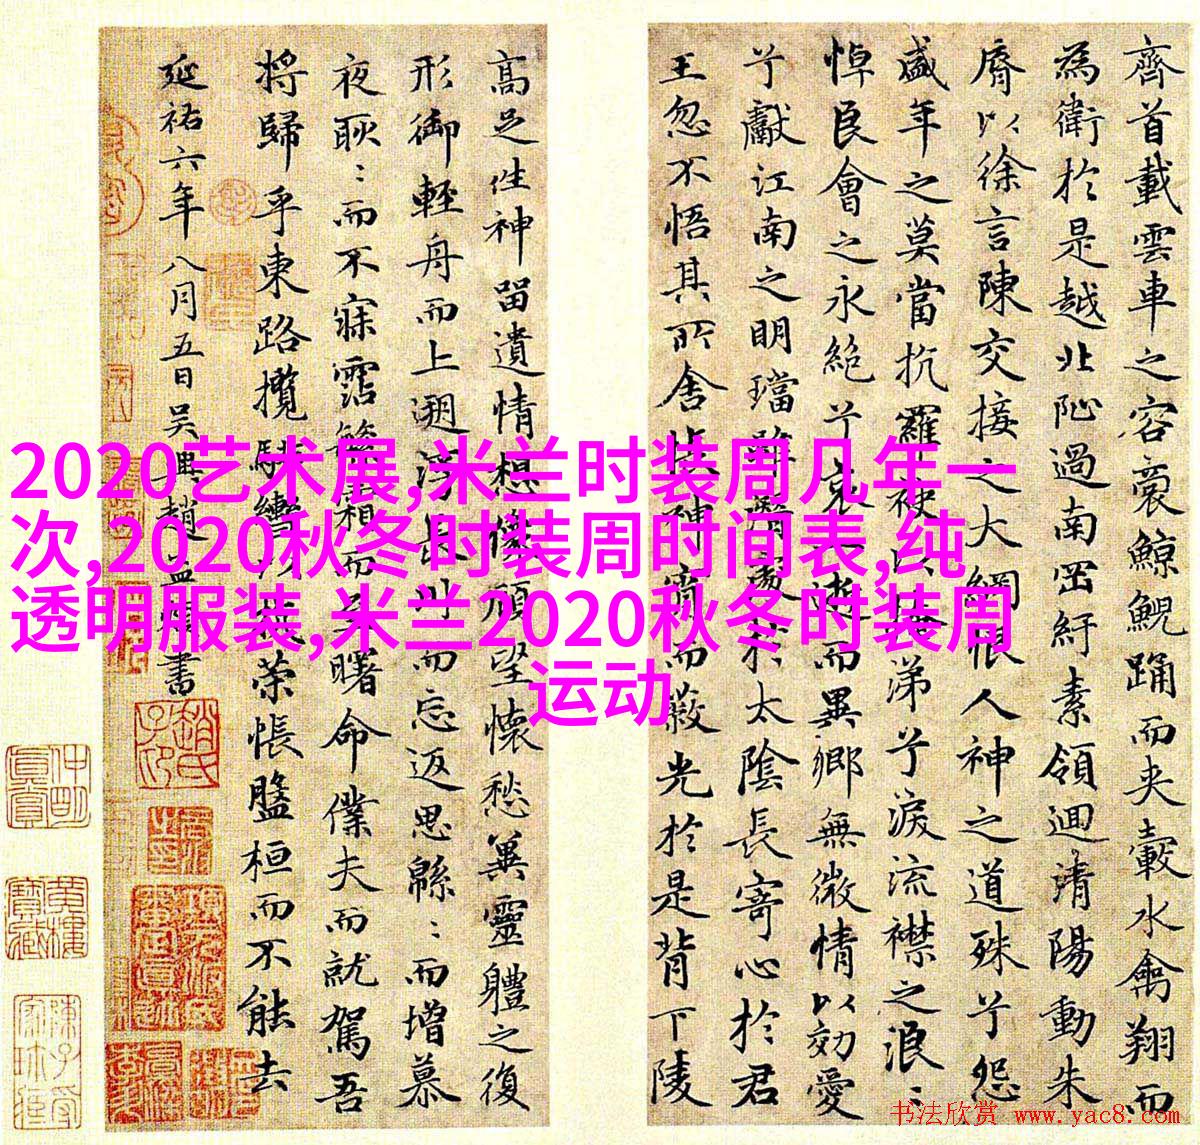 齊首載雲車之容裔鯨鯢踊而夾轂水禽翔而
為衛於是越北沚過南岡紆素領迴清陽動朱
脣以徐言陳交接之大綱恨人神之道殊兮怨
盛年之莫當抗羅袂以掩涕兮淚流襟之浪〻
悼良會之永絕兮哀逝而異鄉無微情以効愛
兮獻江南之明璫雖潛處於太陰長寄心於君
王忽不悟其所舍悵神宵而蔽光於是背下陵
高足往神留遺情想像顧望懷愁冀靈體之復
形御輕舟而上遡浮長川而忘返思緜〻而增慕
夜耿〻而不寐霑繁霜而至曙命僕夫而就駕吾
將歸乎東路攬騑轡以抗策悵盤桓而不能去
延祐六年八月五日吳興趙孟頫書
2020艺术展,米兰时装周几年一
次,2020秋冬时装周时间表,纯
透明服装,米兰2020秋冬时装周
运动
书法欣赏 www.yac8.com